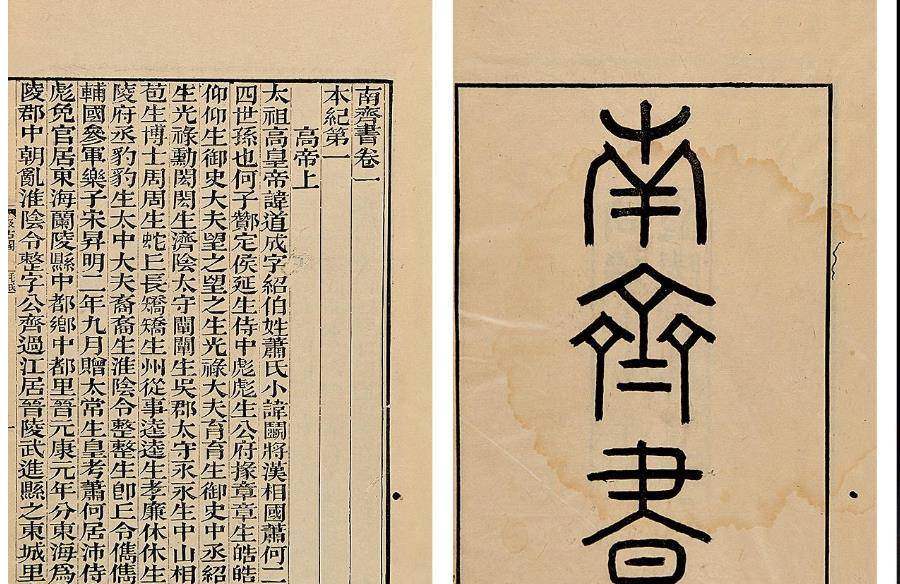 南齊書
南齊書卷一
本紀第一
高帝上
太祖高皇帝諱道成字紹伯姓蕭氏小諱鬭將漢相國蕭何二
四世孫也何子酇定侯延生侍中彪彪生公府掾章章生皓皓
仰仰生御史大夫望之望之生光祿大夫育育生御史中丞紹
生光祿勳閎閎生濟陰太守闡闡生吳郡太守永永生中山相
苞生博士周周生蛇丘長矯矯生州從事逵逵生孝廉休休生
陵府丞豹豹生太中大夫裔裔生淮陰令整整生卽丘令儁儁
輔國參軍樂子宋昇明二年九月贈太常生皇考蕭何居沛侍
彪免官居東海蘭陵縣中都鄉中都里晉元康元年分東海爲
陵郡中朝亂淮陰令整字公齊過江居晉陵武進縣之東城里